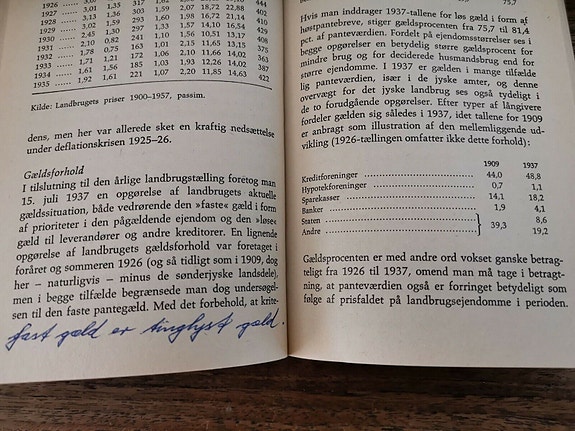 1926 ...... 3,01 1,35 154 18,72 21,14 444
1927 ...... 3,07 1,57 22,88 402
1928 ...... 3,13 1,58 18,72 22,88 400
1929 ...... 3,02 1,59 293 1,66 16,72 21,14 404
1930 ...... 2,45 1,30 297 1,57 14,10 16,54 429
1931 ...... 2,10 0,82 241 1,10 10,51 13,17 408
1932 ...... 1,78 0,75 1,16 10,66 13,65 375
1933 ...... 1,71 1,21 163 2,10 11,66 14,02 363
1934 ...... 1,56 185 1,03 12,26 14,02 387
1935 ...... 1,92 1,61 221 1,07 2,20 11,85 14,63 422
Kilde: Landbrugets priser 1900–1957, passim.
dens, men her var allerede sket en kraftig nedsættelse
under deflationskrisen 1925–26.
Gældsforhold
I tilslutning til den årlige landbrugstælling foretog man
15. juli 1937 en opgørelse af landbrugets aktuelle
gældssituation, både vedrørende den »faste« gæld i form
af prioriteter i den pågældende ejendom og den »løse«
gæld til leverandører og andre kreditorer. En lignende
opgørelse af landbrugets gældsforhold var foretaget i
foråret og sommeren 1926 (og så tidligt som i 1909, dog
her – naturligvis – minus de sønderjyske landsdele),
men i begge tilfælde begrænsede man dog undersøgel-
sen til den faste pantegæld. Med det forbehold, at krite-
fast gæld er tinglyst gæld.
Hvis man inddrager 1937-tallene for løs gæld i form af
høstpantebreve, stiger gældsprocenten fra 75,7 til 81,4
pct. af panteværdien. Fordelt på ejendomsstørrelser ses i
begge opgørelser en betydelig større gældsprocent for
mindre brug og for deciderede husmandsbrug end for
større ejendomme. I 1937 er gælden i mange tilfælde
lig panteværdien, især i de jyske amter, og denne
overvægt for det jyske landbrug ses også tydeligt i
de to forudgående opgørelser. Efter typer af långivere
fordeler gælden sig således i 1937, idet tallene for 1909
er anbragt som illustration af den mellemliggende ud-
vikling (1926-tællingen omfatter ikke dette forhold):
1909 1937
Kreditforeninger 44,0 48,8
Hypotekforeninger 0,7 1,1
Sparekasser 14,1 18,2
Banker 1,9 4,1
Staten 39,3 8,6
Andre 19,2
Gældsprocenten er med andre ord vokset ganske betrag-
teligt fra 1926 til 1937, omend man må tage i betragt-
ning, at panteværdien også er forringet betydeligt som
følge af prisfaldet på landbrugsejendomme i perioden.